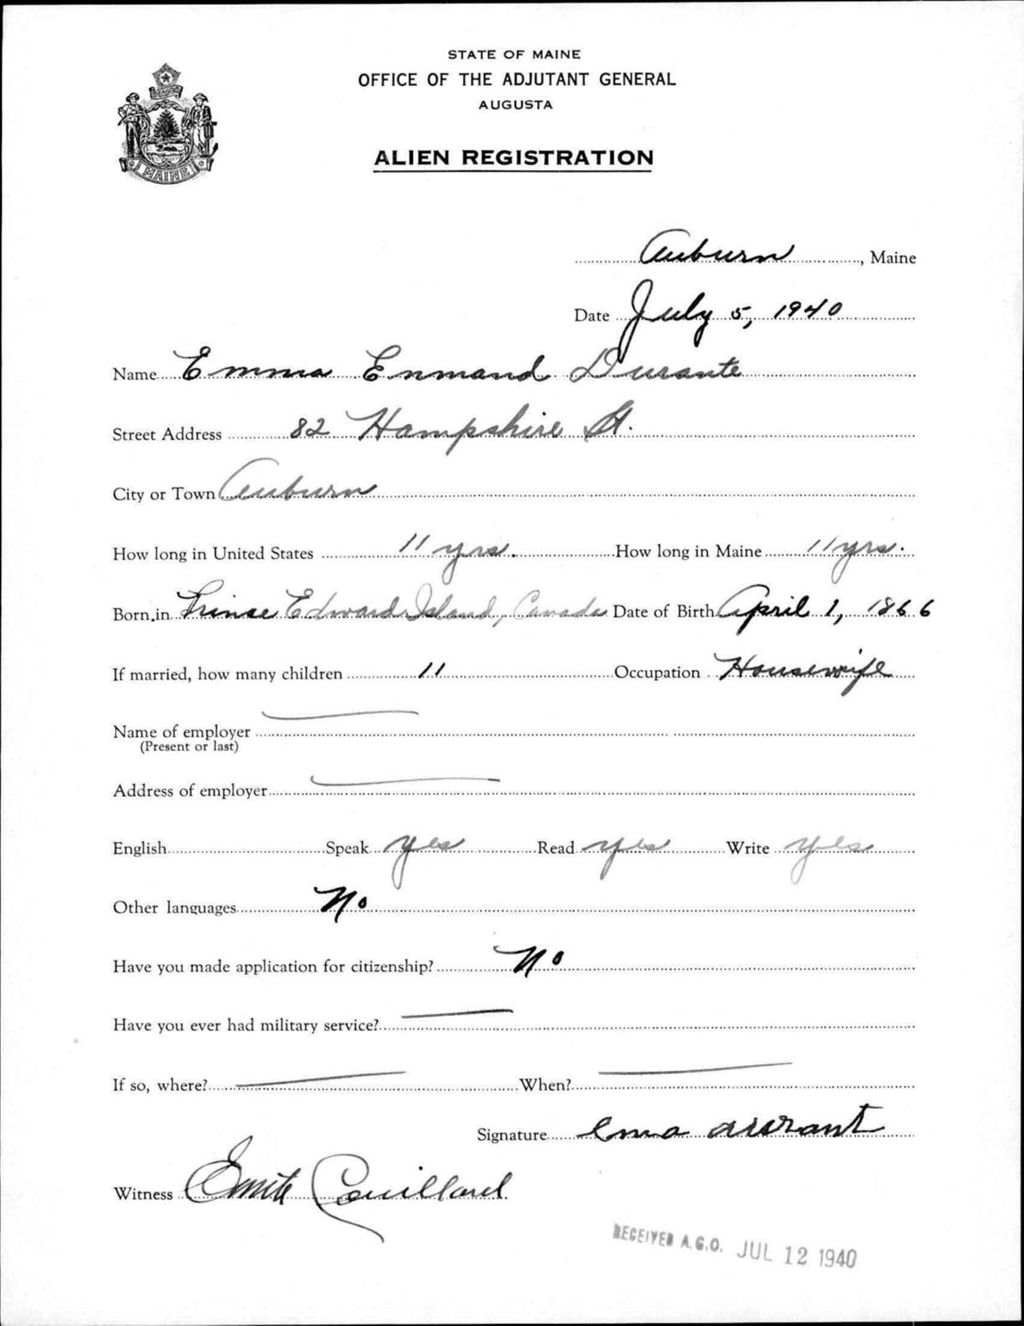 STATE OF MAINE
OFFICE OF THE ADJUTANT GENERAL
AUGUSTA
ALIEN REGISTRATION
MAINE
Auburn, Maine
Date July 5, 1940
Name Emma Enmand Durante
Street Address 82 Hampshire St.
City or Town Auburn
How long in United States 11 yrs. How long in Maine 11 yrs.
Born in Prince Edward Island, Canada Date of Birth April 1, 1866
If married, how many children 11 Occupation Housewife
Name of employer
(Present or last)
Address of employer
English Speak yes Read yes Write yes
Other languages No
Have you made application for citizenship? No
Have you ever had military service?
If so, where? When?
Signature Ema durant
Witness Couillard
RECEIVED A.G.O. JUL 12 1940